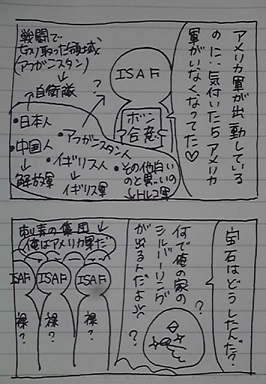 アメリカ軍が出動している
のに…気付いたらアメリカ
軍がいなくなってた♡
戦闘で
切り取った領域
(アフガンスタン)
↓
自衛隊
?
ISAF
ボン
合意
・日本人
・中国人
↓
解放軍
・アフガニスタン人
・イギリス人
↓
イギリス軍
・その他白い
のと黒いの
→トルコ軍
宝石はどうしたんだ?
何で俺の家の
シルバーリング
が出るんだよ
?
?
の集団
俺はアメリカ軍だ
ISAF
ISAF
ISAF
禄?
禄?
禄?